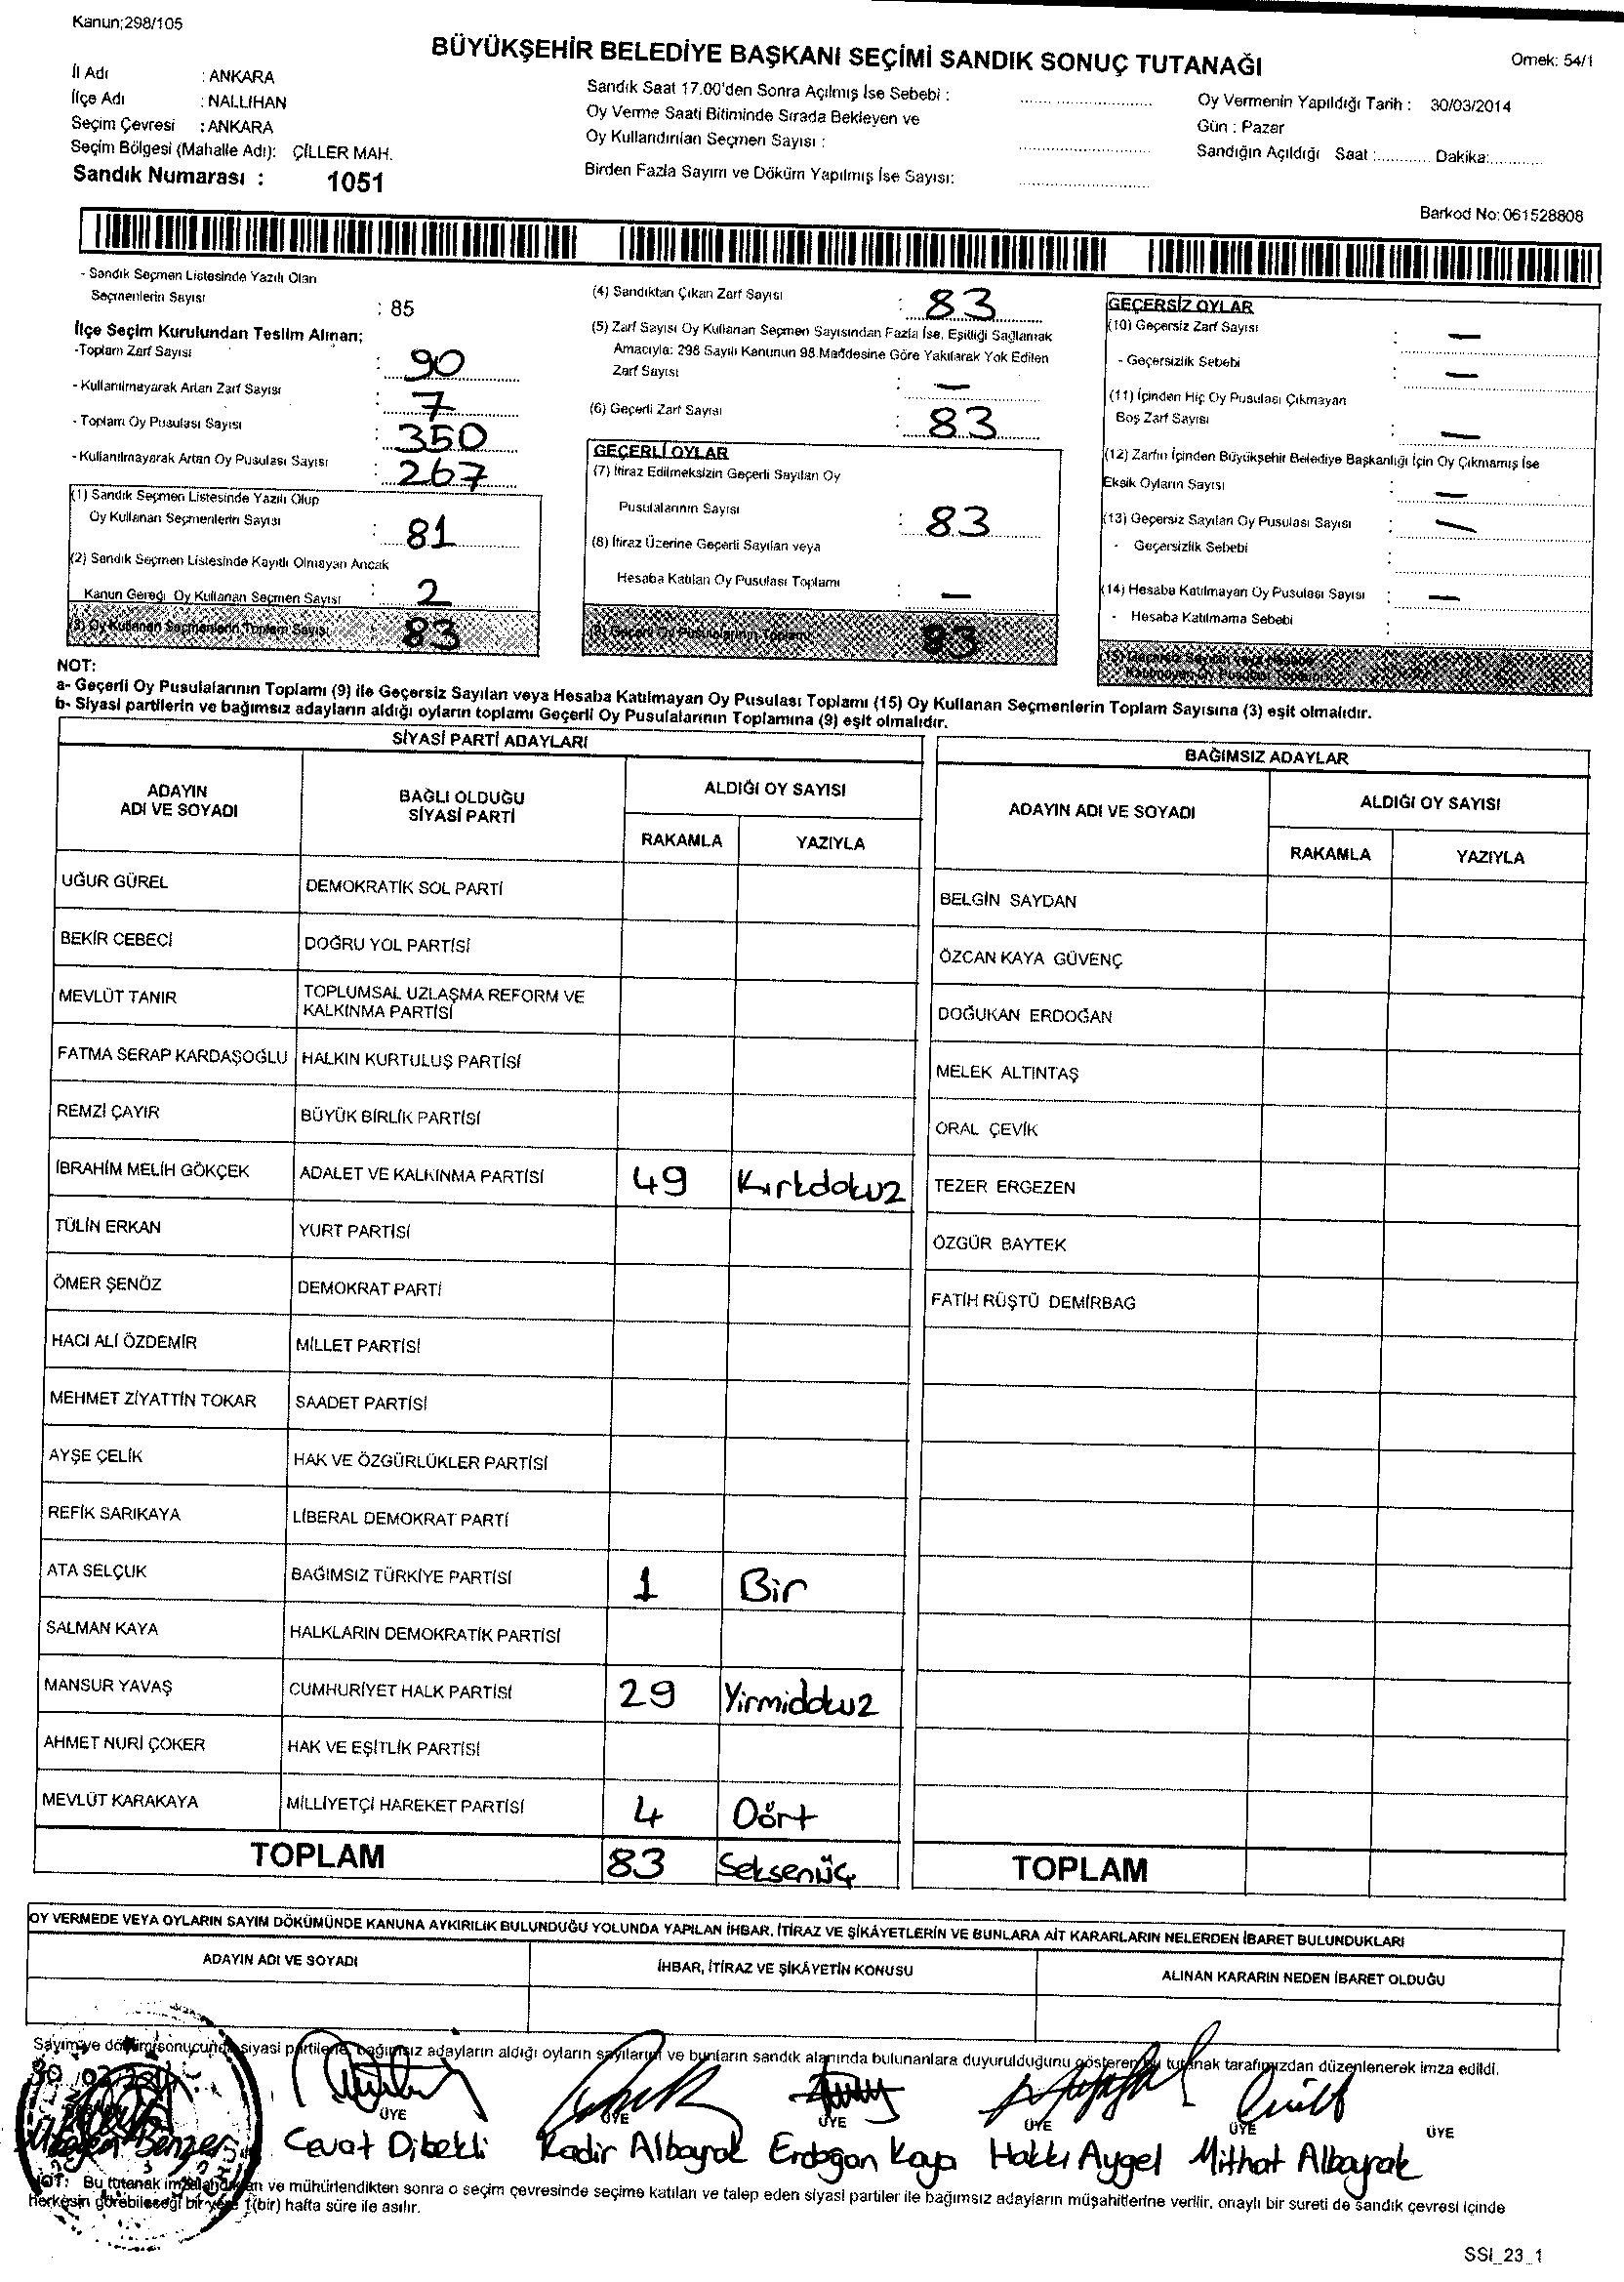 Kanun;298/105
BÜYÜKŞEHİR BELEDİYE BAŞKANI SEÇİMİ SANDIK SONUÇ TUTANAĞI
Örnek: 54/1
İl Adı : ANKARA
İlçe Adı : NALLIHAN
Seçim Çevresi : ANKARA
Seçim Bölgesi (Mahalle Adı): ÇİLLER MAH.
Sandık Numarası : 1051
Sandık Saat 17.00'den Sonra Açılmış İse Sebebi :
Oy Verme Saati Bitiminde Sırada Bekleyen ve
Oy Kullandırılan Seçmen Sayısı :
Birden Fazla Sayım ve Döküm Yapılmış İse Sayısı:
Oy Vermenin Yapıldığı Tarih : 30/03/2014
Gün : Pazar
Sandığın Açıldığı Saat :............ Dakika:............
Barkod No: 061528808
- Sandık Seçmen Listesinde Yazılı Olan
Seçmenlerin Sayısı : 85
İlçe Seçim Kurulundan Teslim Alınan;
-Toplam Zarf Sayısı : 90
- Kullanılmayarak Artan Zarf Sayısı : 7
- Toplam Oy Pusulası Sayısı : 350
- Kullanılmayarak Artan Oy Pusulası Sayısı : 267
(1) Sandık Seçmen Listesinde Yazılı Olup
Oy Kullanan Seçmenlerin Sayısı : 81
(2) Sandık Seçmen Listesinde Kayıtlı Olmayan Ancak
Kanun Gereği Oy Kullanan Seçmen Sayısı : 2
(3) Oy Kullanan Seçmenlerin Toplam Sayısı : 83
(4) Sandıktan Çıkan Zarf Sayısı : 83
(5) Zarf Sayısı Oy Kullanan Seçmen Sayısından Fazla İse, Eşitliği Sağlamak
Amacıyla: 298 Sayılı Kanunun 98.Maddesine Göre Yakılarak Yok Edilen
Zarf Sayısı : —
(6) Geçerli Zarf Sayısı : 83
GEÇERLİ OYLAR
(7) İtiraz Edilmeksizin Geçerli Sayılan Oy
Pusulalarının Sayısı : 83
(8) İtiraz Üzerine Geçerli Sayılan veya
Hesaba Katılan Oy Pusulası Toplamı : —
(9) Geçerli Oy Pusulalarının Toplamı 83
GEÇERSİZ OYLAR
(10) Geçersiz Zarf Sayısı : —
- Geçersizlik Sebebi : —
(11) İçinden Hiç Oy Pusulası Çıkmayan
Boş Zarf Sayısı : —
(12) Zarfın İçinden Büyükşehir Belediye Başkanlığı İçin Oy Çıkmamış İse
Eksik Oyların Sayısı : —
(13) Geçersiz Sayılan Oy Pusulası Sayısı : —
- Geçersizlik Sebebi :
(14) Hesaba Katılmayan Oy Pusulası Sayısı : —
- Hesaba Katılmama Sebebi :
(15) Geçersiz Sayılan veya Hesaba
Katılmayan Oy Pusulası Toplamı
NOT:
a- Geçerli Oy Pusulalarının Toplamı (9) ile Geçersiz Sayılan veya Hesaba Katılmayan Oy Pusulası Toplamı (15) Oy Kullanan Seçmenlerin Toplam Sayısına (3) eşit olmalıdır.
b- Siyasi partilerin ve bağımsız adayların aldığı oyların toplamı Geçerli Oy Pusulalarının Toplamına (9) eşit olmalıdır.
SİYASİ PARTİ ADAYLARI
ADAYIN ADI VE SOYADI
BAĞLI OLDUĞU SİYASİ PARTİ
ALDIĞI OY SAYISI
RAKAMLA YAZIYLA
UĞUR GÜREL DEMOKRATİK SOL PARTİ
BEKİR CEBECİ DOĞRU YOL PARTİSİ
MEVLÜT TANIR TOPLUMSAL UZLAŞMA REFORM VE KALKINMA PARTİSİ
FATMA SERAP KARDAŞOĞLU HALKIN KURTULUŞ PARTİSİ
REMZİ ÇAYIR BÜYÜK BİRLİK PARTİSİ
İBRAHİM MELİH GÖKÇEK ADALET VE KALKINMA PARTİSİ 49 Kırkdokuz
TÜLİN ERKAN YURT PARTİSİ
ÖMER ŞENÖZ DEMOKRAT PARTİ
HACI ALİ ÖZDEMİR MİLLET PARTİSİ
MEHMET ZİYATTİN TOKAR SAADET PARTİSİ
AYŞE ÇELİK HAK VE ÖZGÜRLÜKLER PARTİSİ
REFİK SARIKAYA LİBERAL DEMOKRAT PARTİ
ATA SELÇUK BAĞIMSIZ TÜRKİYE PARTİSİ 1 Bir
SALMAN KAYA HALKLARIN DEMOKRATİK PARTİSİ
MANSUR YAVAŞ CUMHURİYET HALK PARTİSİ 29 Yirmidokuz
AHMET NURİ ÇOKER HAK VE EŞİTLİK PARTİSİ
MEVLÜT KARAKAYA MİLLİYETÇİ HAREKET PARTİSİ 4 Dört
TOPLAM 83 Seksenüç
BAĞIMSIZ ADAYLAR
ADAYIN ADI VE SOYADI
ALDIĞI OY SAYISI
RAKAMLA YAZIYLA
BELGİN SAYDAN
ÖZCAN KAYA GÜVENÇ
DOĞUKAN ERDOĞAN
MELEK ALTINTAŞ
ORAL ÇEVİK
TEZER ERGEZEN
ÖZGÜR BAYTEK
FATİH RÜŞTÜ DEMİRBAG
TOPLAM
OY VERMEDE VEYA OYLARIN SAYIM DÖKÜMÜNDE KANUNA AYKIRILIK BULUNDUĞU YOLUNDA YAPILAN İHBAR, İTİRAZ VE ŞİKÂYETLERİN VE BUNLARA AİT KARARLARIN NELERDEN İBARET BULUNDUKLARI
ADAYIN ADI VE SOYADI İHBAR, İTİRAZ VE ŞİKÂYETİN KONUSU ALINAN KARARIN NEDEN İBARET OLDUĞU
Sayım ve döküm sonucunda siyasi partilerin, bağımsız adayların aldığı oyların sayılarını ve bunların sandık alanında bulunanlara duyurulduğunu gösteren bu tutanak tarafımızdan düzenlenerek imza edildi.
ÜYE ÜYE ÜYE ÜYE ÜYE ÜYE
Cevat Dibekli Kadir Albayrak Erdoğan Kaya Hakkı Aygel Mithat Albayrak
NOT: Bu tutanak imzalandıktan ve mühürlendikten sonra o seçim çevresinde seçime katılan ve talep eden siyasi partiler ile bağımsız adayların müşahitlerine verilir, onaylı bir sureti de sandık çevresi içinde
herkesin görebileceği bir yere 1(bir) hafta süre ile asılır.
SSI_23_1